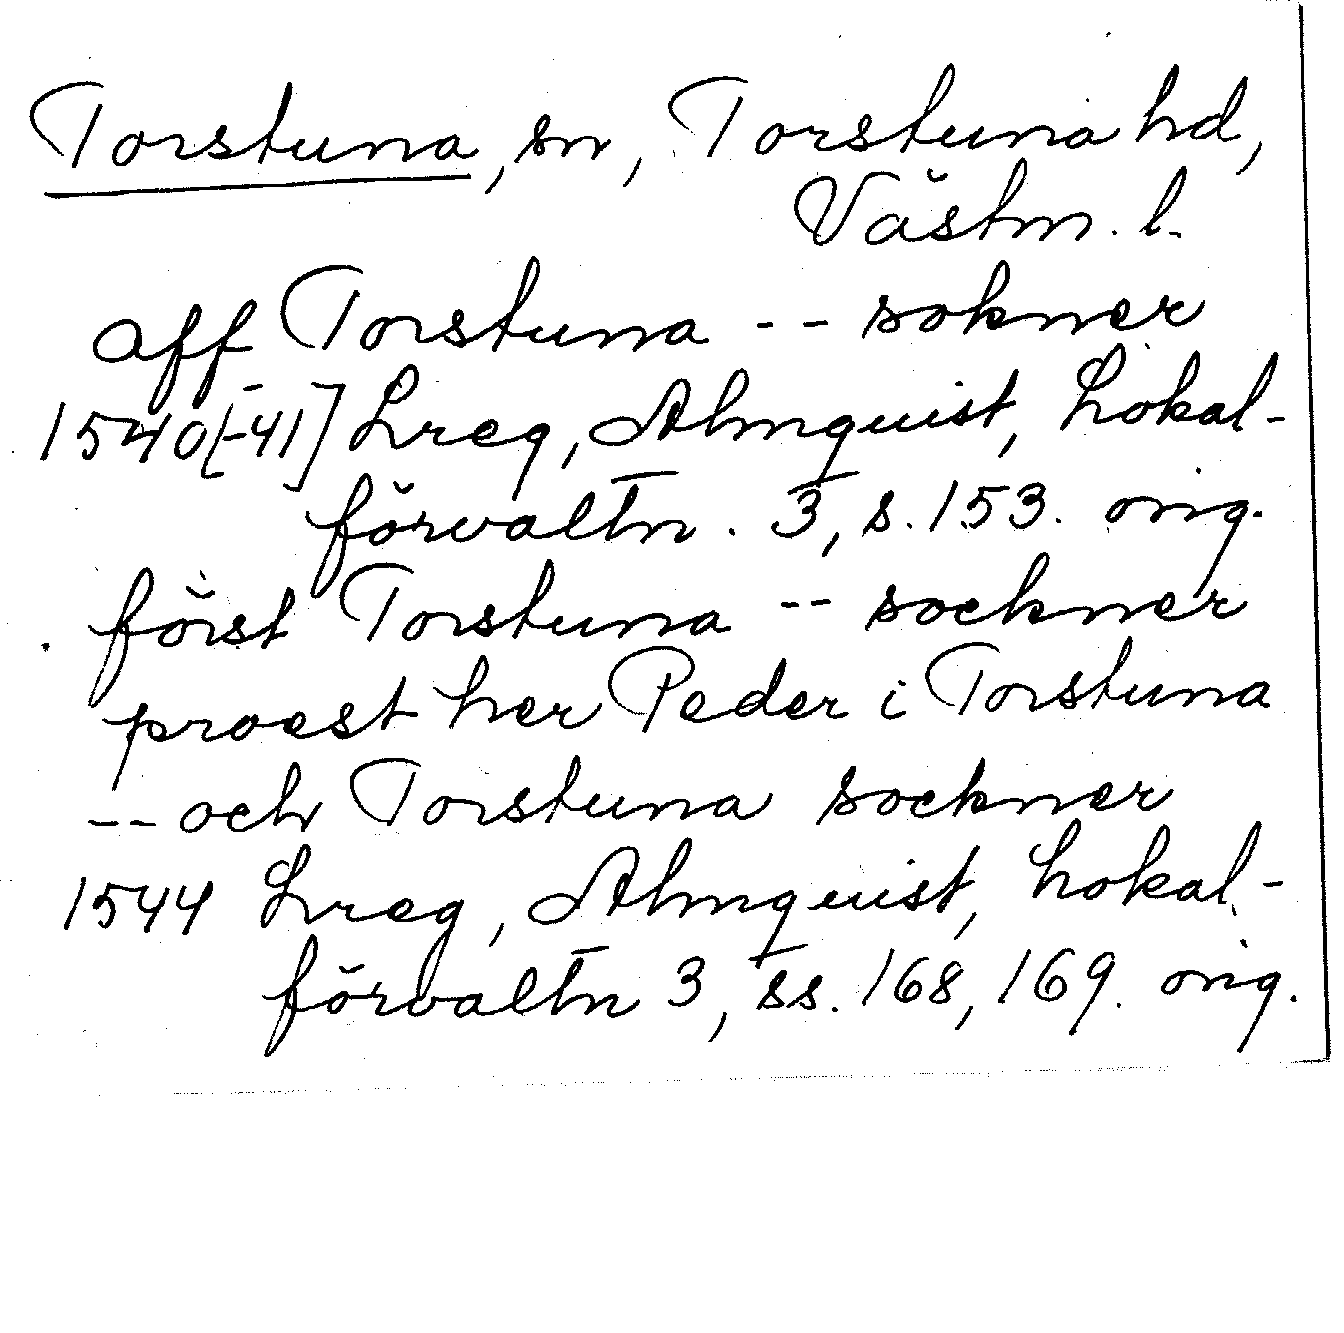 Torstuna, sn, Torstuna hd,
Västm. l.
aff Torstuna -- sokner
1540[-41] Lreg, Almquist, Lokal-
förvaltn. 3, s. 153. orig.
först Torstuna -- sockner
proest her Peder i Torstuna
-- och Torstuna sockner
1544 Lreg, Almquist, Lokal-
förvaltn 3, ss. 168, 169. orig.